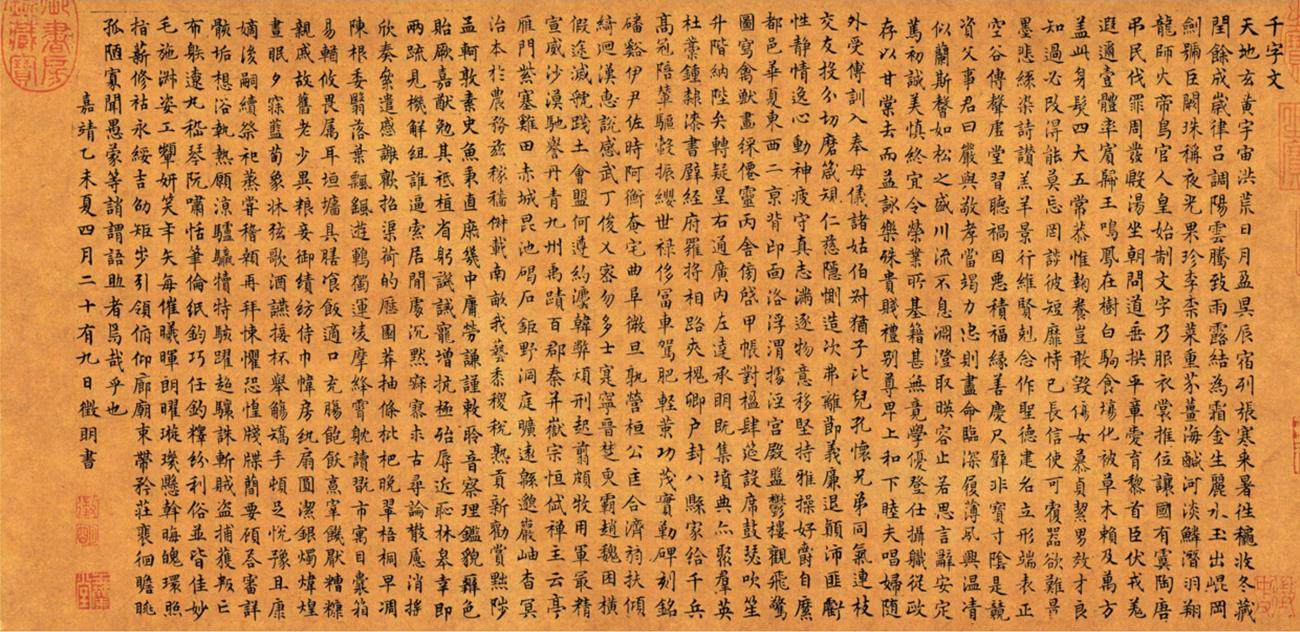 千字文
天地玄黃宇宙洪荒日月盈昃辰宿列張寒来暑往穐收冬藏
閏餘成歲律呂調陽雲騰致雨露結為霜金生麗水玉出崐岡
劍號巨闕珠稱夜光果珍李柰菜重芥薑海鹹河淡鱗潛羽翔
龍師火帝鳥官人皇始制文字乃服衣裳推位讓國有虞陶唐
弔民伐罪周發殷湯坐朝問道垂拱平章愛育黎首臣伏戎羌
遐邇壹體率賓歸王鳴鳳在樹白駒食場化被草木賴及萬方
盖此身髮四大五常恭惟鞠養豈敢毀傷女慕貞潔男效才良
知過必改得能莫忘罔談彼短靡恃己長信使可覆器欲難量
墨悲絲染詩讚羔羊景行維賢剋念作聖德建名立形端表正
空谷傳聲虛堂習聽禍因惡積福緣善慶尺璧非寶寸陰是競
資父事君曰嚴與敬孝當竭力忠則盡命臨深履薄夙興溫凊
似蘭斯馨如松之盛川流不息淵澄取暎容止若思言辭安定
篤初誠美慎終宜令榮業所基籍甚無竟學優登仕攝職從政
存以甘棠去而益詠樂殊貴賤禮別尊卑上和下睦夫唱婦隨
外受傅訓入奉母儀諸姑伯叔猶子比兒孔懷兄弟同氣連枝
交友投分切磨箴規仁慈隱惻造次弗離節義廉退顛沛匪虧
性静情逸心動神疲守真志滿逐物意移堅持雅操好爵自縻
都邑華夏東西二京背邙面洛浮渭據涇宮殿盤鬱樓觀飛驚
圖寫禽獸畫綵僊靈丙舍傍啟甲帳對楹肆筵設席鼓瑟吹笙
升階納陛弁轉疑星右通廣內左達承明既集墳典亦聚羣英
杜藁鍾隸漆書壁經府羅將相路夾槐卿户封八縣家給千兵
高冠陪輦驅轂振纓世禄侈富車駕肥軽䇿功茂實勒碑刻銘
磻谿伊尹佐時阿衡奄宅曲阜微旦孰營桓公匡合濟弱扶傾
綺迴漢惠說感武丁俊乂密勿多士寔寧晉楚更霸趙魏困横
假途滅虢踐土會盟何遵約灋韓弊煩刑起翦頗牧用軍最精
宣威沙漠馳譽丹青九州禹蹟百郡秦并嶽宗恒岱禅主云亭
雁門紫塞雞田赤城昆池碣石鉅野洞庭曠遠緜邈巖岫杳冥
治本於農務茲稼穡俶載南畝我藝黍稷稅熟貢新勸賞黜陟
孟軻敦素史魚秉直庶幾中庸勞謙謹敕聆音察理鑑貌辯色
貽厥嘉猷勉其祗植省躬譏誡寵增抗極殆辱近恥林皋幸即
兩疏見機解組誰逼索居閒處沉默寂寥求古尋論散慮消揺
欣奏累遣慼謝歡招渠荷的歷園莽抽條枇杷晚翠梧桐早凋
陳根委翳落葉飄颻遊鵾獨運凌摩絳霄耽讀翫市寓目囊箱
易輶攸畏属耳垣墻具膳飡飯適口充腸飽飫烹宰饑厭糟糠
親戚故舊老少異粮妾御績紡侍巾帷房紈扇圓潔銀燭煒煌
晝眠夕寐藍筍象牀弦歌酒讌接杯舉觴矯手頓足悦豫且康
嫡後嗣續祭祀蒸嘗稽顙再拜悚懼恐惶牋牒簡要顧答審詳
骸垢想浴執熱願涼驢騾犢特駭躍超驤誅斬賊盗捕獲叛亡
布射遼丸嵇琴阮嘯恬筆倫紙鈞巧任釣釋紛利俗並皆佳妙
毛施淑姿工顰妍笑年矢每催曦暉朗曜璇璣懸斡晦魄環照
指薪修祜永綏吉劭矩步引領俯仰廊廟束帶矜莊裵徊瞻眺
孤陋寡聞愚蒙等誚謂語助者焉哉乎也
嘉靖乙未夏四月二十有九日徵明書